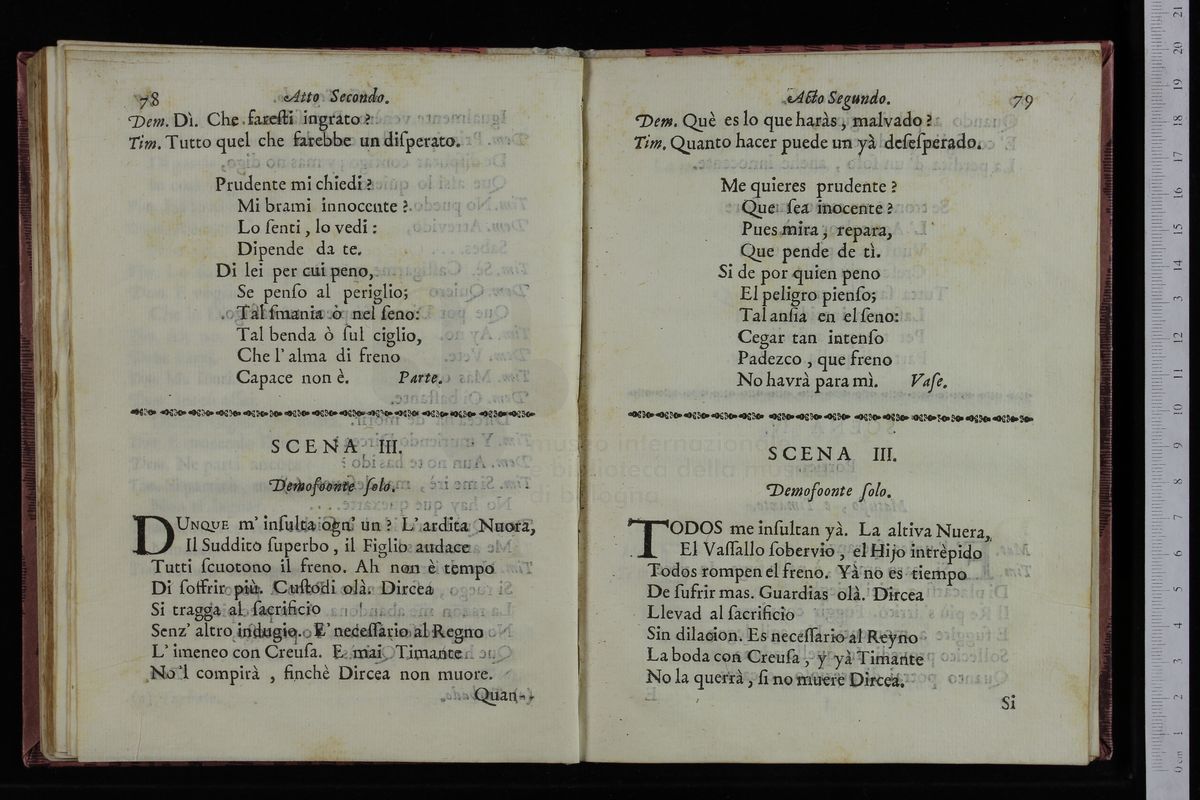 78
Atto Secondo.
Dem. Dì. Che fareſti ingrato?
Tim. Tutto quel che farebbe un diſperato.
Prudente mi chiedi?
Mi brami innocente?
Lo ſenti, lo vedi:
Dipende da te.
Di lei per cui peno,
Se penſo al periglio;
Tal ſmania ò nel ſeno:
Tal benda ò ſul ciglio,
Che l' alma di freno
Capace non è. Parte.
SCENA III.
Demofoonte ſolo.
DUNQUE m' inſulta ogn' un? L' ardita Nuora,
Il Suddito ſuperbo, il Figlio audace
Tutti ſcuotono il freno. Ah non è tempo
Di ſoffrir più. Cuſtodi olà. Dircea
Si tragga al ſacrificio
Senz' altro indugio. E' neceſſario al Regno
L' imeneo con Creuſa. E mai Timante
No 'l compirà, finchè Dircea non muore.
Quan-
Acto Segundo.
79
Dem. Què es lo que haràs, malvado?
Tim. Quanto hacer puede un yà deſeſperado.
Me quieres prudente?
Que ſea inocente?
Pues mira, repara,
Que pende de tì.
Si de por quien peno
El peligro pienſo;
Tal anſia en el ſeno:
Cegar tan intenſo
Padezco, que freno
No havrà para mì. Vaſe.
SCENA III.
Demofoonte ſolo.
TODOS me inſultan yà. La altiva Nuera,
El Vaſſallo ſobervio, el Hijo intrèpido
Todos rompen el freno. Yà no es tiempo
De ſufrir mas. Guardias olà. Dircea
Llevad al ſacrificio
Sin dilacion. Es neceſſario al Reyno
La boda con Creuſa, y yà Timante
No la querrà, ſi no muere Dircea.
Si
museo internazionale
e biblioteca della musica
di bologna
0 cm 1 2 3 4 5 6 7 8 9 10 11 12 13 14 15 16 17 18 19 20 21